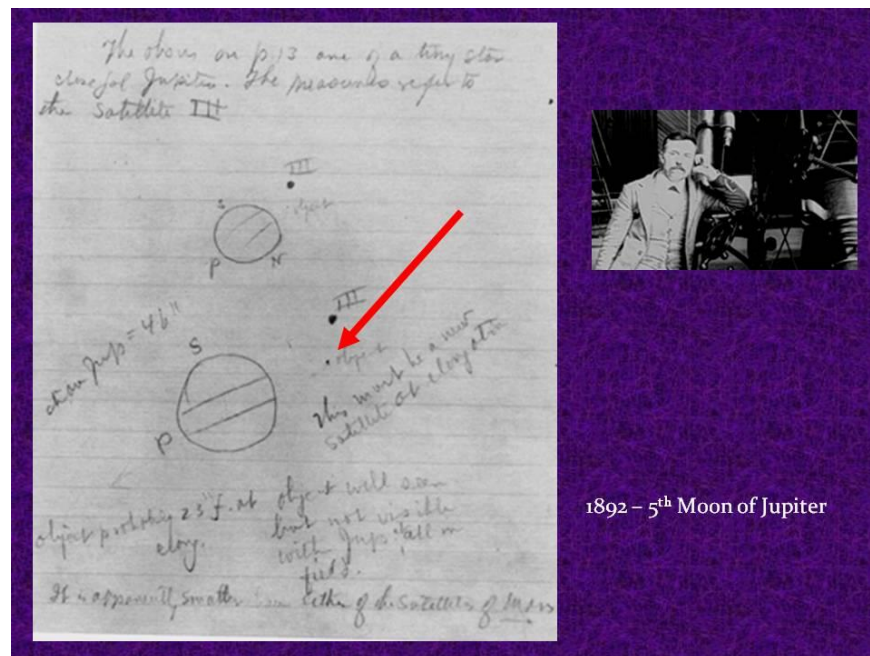 The above on p. 13 are of a tiny star
close to Jupiter. The measures refer to
the Satellite III
III
object
S
P
N
III
diam Jup = 46"
S
object
This must be a new
satellite at elongation
P
object probably 23" f. at
elong.
object well seen
but not visible
with Jup. at all in
field.
It is apparently smaller than either of the Satellites of Mars
1892 – 5th Moon of Jupiter